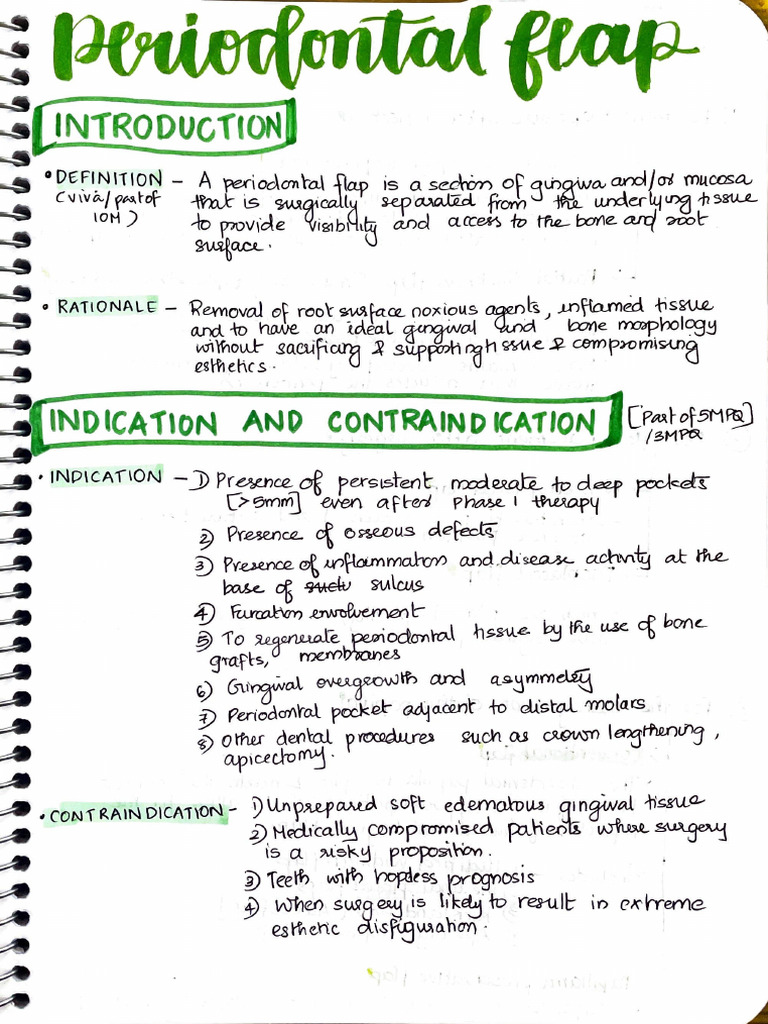 Periodontal flap
INTRODUCTION
• DEFINITION – A periodontal flap is a section of gingiva and/or mucosa
(viva/part of that is surgically separated from the underlying tissue
10M) to provide visibility and access to the bone and root
surface.
• RATIONALE – Removal of root surface noxious agents, inflamed tissue
and to have an ideal gingival and bone morphology
without sacrificing & supporting tissue & compromising
esthetics.
INDICATION AND CONTRAINDICATION [Part of 5MPQ]
/3MPQ
• INDICATION – 1) Presence of persistent moderate to deep pockets
[>5mm] even after Phase 1 therapy
2) Presence of osseous defects
3) Presence of inflammation and disease activity at the
base of sulcus
4) Furcation envolvement
5) To regenerate periodontal tissue by the use of bone
grafts, membranes
6) Gingival overgrowth and asymmetry
7) Periodontal pocket adjacent to distal molars
8) Other dental procedures such as crown lengthening,
apicectomy.
• CONTRAINDICATION – 1) Unprepared soft edematous gingival tissue
2) Medically compromised patients where surgery
is a risky proposition.
3) Teeth with hopless prognosis
4) When surgery is likely to result in extreme
esthetic disfiguration.